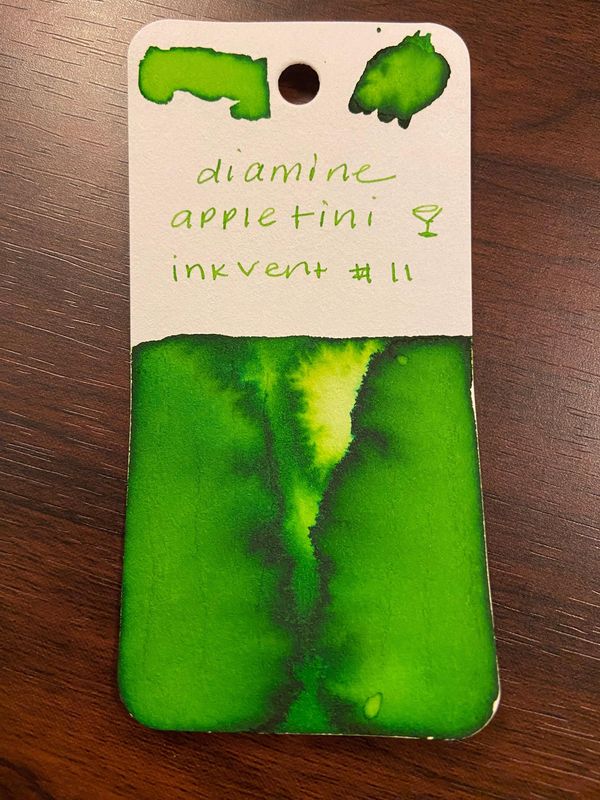 diamine
appletini
inkvent #11